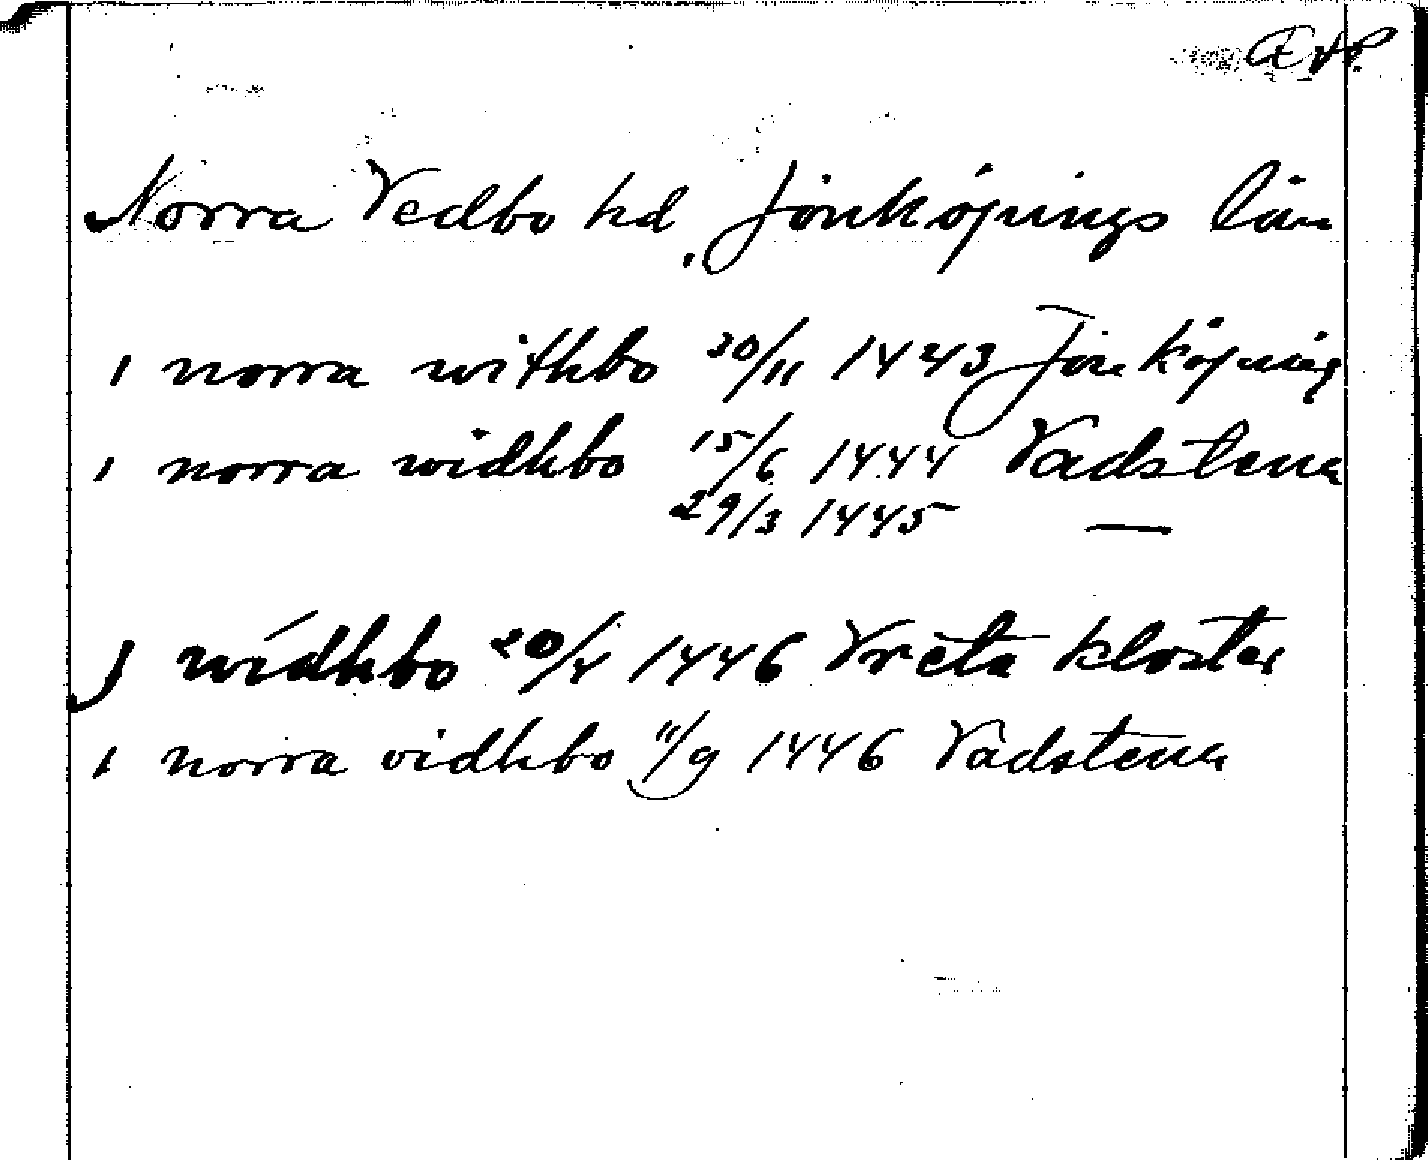 Norra Vedbo hd, Jönköpings län
i norra withbo 30/11 1443 Jönköping
i norra widhbo 15/6 1444 Vadstena
29/3 1445 —
j widhbo 20/4 1446 Vreta kloster
i norra vidhbo 11/9 1446 Vadstena